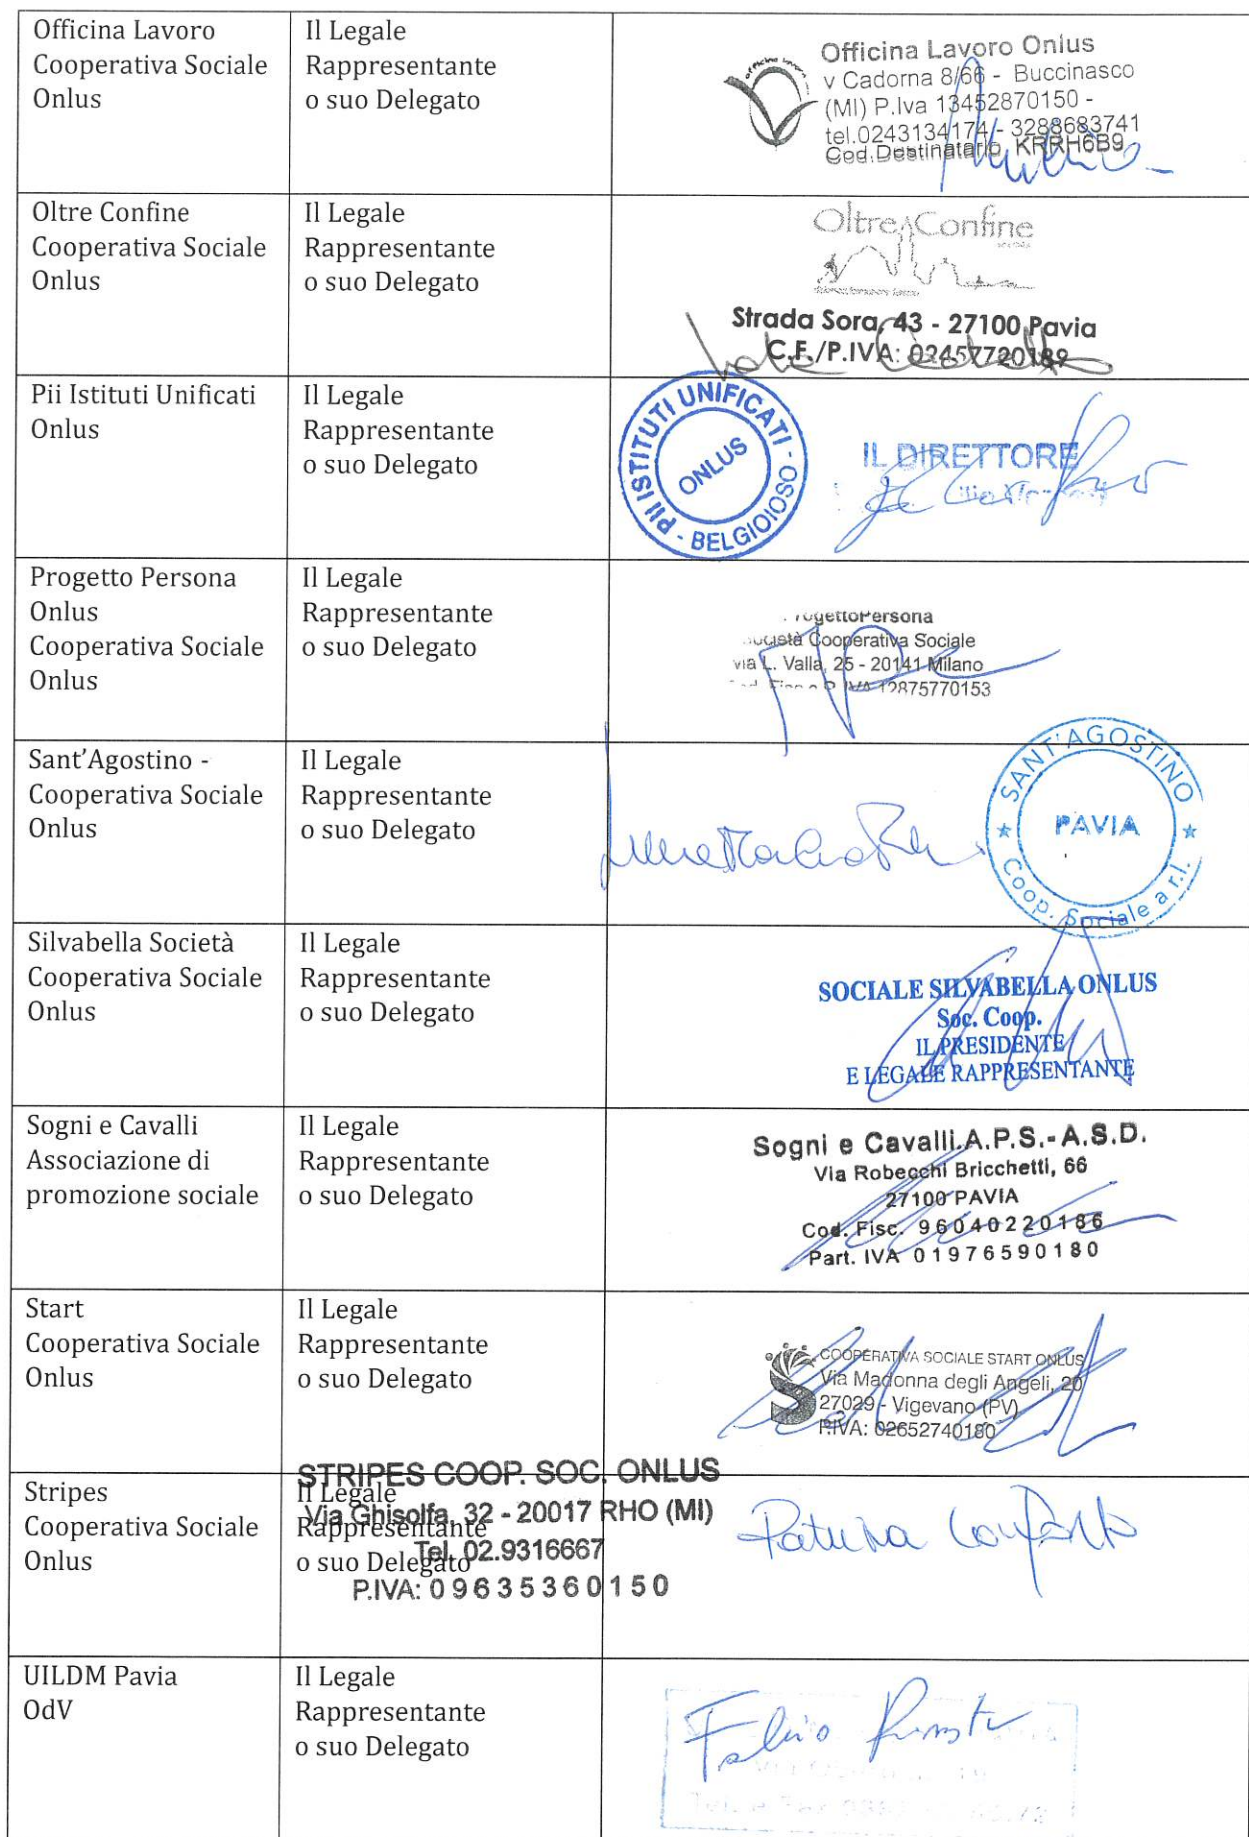 Officina Lavoro
Cooperativa Sociale
Onlus
Il Legale
Rappresentante
o suo Delegato
officina lavoro
Officina Lavoro Onlus
v Cadorna 8/66 - Buccinasco
(MI) P.Iva 13452870150 -
tel.0243134174 - 3288683741
Cod.Destinatario KRRH6B9
Oltre Confine
Cooperativa Sociale
Onlus
Il Legale
Rappresentante
o suo Delegato
Oltre Confine
Strada Sora, 43 - 27100 Pavia
C.F./P.IVA: 02457720189
Pii Istituti Unificati
Onlus
Il Legale
Rappresentante
o suo Delegato
PII ISTITUTI UNIFICATI - BELGIOIOSO -
ONLUS
IL DIRETTORE
Progetto Persona
Onlus
Cooperativa Sociale
Onlus
Il Legale
Rappresentante
o suo Delegato
ProgettoPersona
Società Cooperativa Sociale
via L. Valla, 25 - 20141 Milano
Cod. Fisc e P. IVA 12875770153
Sant'Agostino -
Cooperativa Sociale
Onlus
Il Legale
Rappresentante
o suo Delegato
SANT'AGOSTINO
PAVIA
Coop. Sociale a r.l.
Silvabella Società
Cooperativa Sociale
Onlus
Il Legale
Rappresentante
o suo Delegato
SOCIALE SILVABELLA ONLUS
Soc. Coop.
IL PRESIDENTE
E LEGALE RAPPRESENTANTE
Sogni e Cavalli
Associazione di
promozione sociale
Il Legale
Rappresentante
o suo Delegato
Sogni e Cavalli.A.P.S.-A.S.D.
Via Robecchi Bricchetti, 66
27100 PAVIA
Cod. Fisc. 96040220186
Part. IVA 01976590180
Start
Cooperativa Sociale
Onlus
Il Legale
Rappresentante
o suo Delegato
COOPERATIVA SOCIALE START ONLUS
Via Madonna degli Angeli, 20
27029 - Vigevano (PV)
P.IVA: 02652740180
Stripes
Cooperativa Sociale
Onlus
Il Legale
Rappresentante
o suo Delegato
STRIPES COOP. SOC. ONLUS
Via Ghisolfa, 32 - 20017 RHO (MI)
Tel. 02.9316667
P.IVA: 09635360150
UILDM Pavia
OdV
Il Legale
Rappresentante
o suo Delegato
Fabio